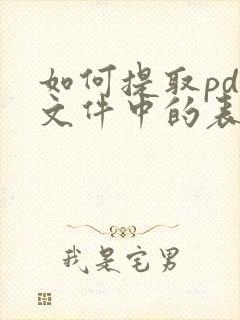 如何提取pd
文件中的表
我是宅男